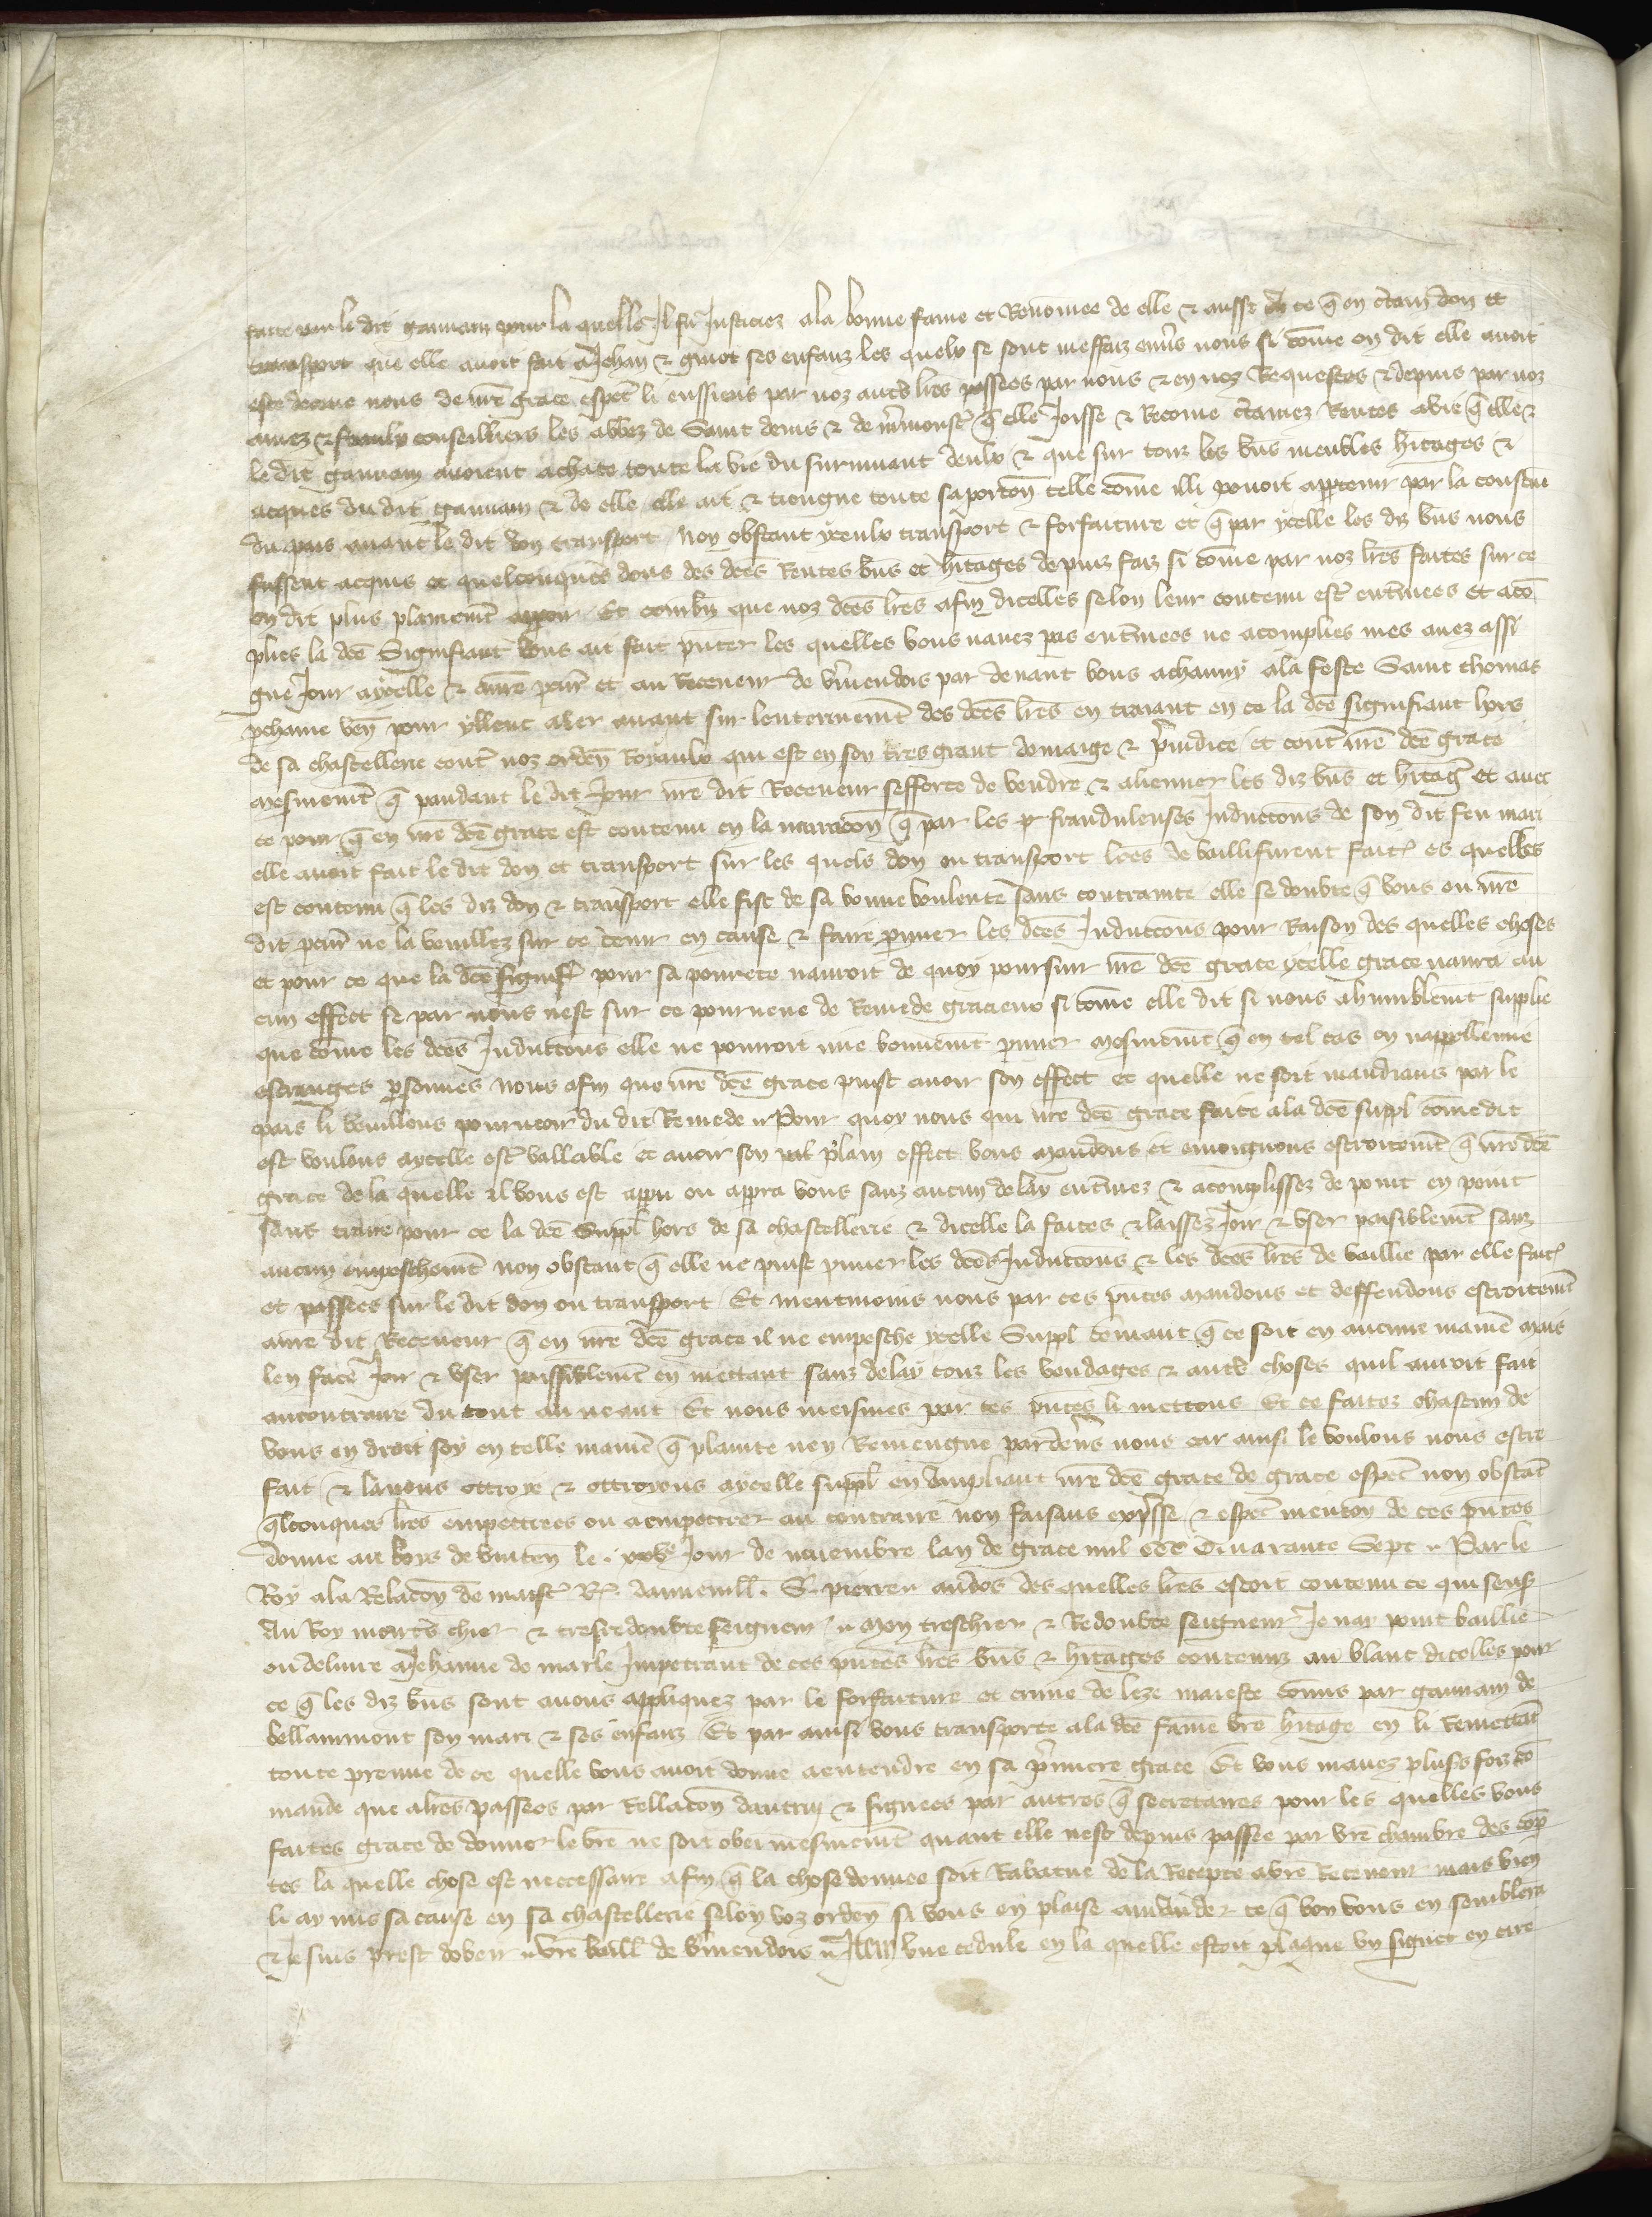 faite par le dit gauuain pour la quelle Il fu Justiciez a la bonne fame et Renōmee de elle & aussi de ce q̄ on ctain don et
transport que elle auoit fait a Jehan & guiot ses enfanz les quelx se sont meffaiz enũs nous si cōme on dit elle auoit
este deceue nous de nr̄e grace esp̄al li eussiens par noz aut̄s lr̄es passees par nous & en noz Requestes & depuis par noz
amez & feaulx conseilliers les abbez de Saint denis & de m̄monst̄ q̄ elle Joisse & Recoiue ctainez Rentes a vie q̄ elle &
le dit gauuain auoient achate toute la vie du suruiuant deulx & que sur touz les bn̄s meubles hitages &
acques du dit gauuain & de elle elle ait & tiengne toute sa porcōn telle cōme illi pouoit app̄tenir par la constūe
du pais auant le dit don transport Non obstant yceulx transport & forfaiture et q̄ par ycelle les diz bn̄s nous
fussent acquis et quelconques dons des dc̄es Rentes bn̄s et hitages depuis faiz si cōme par noz lr̄es faites sur ce
on dit plus plainemt̄ apparoir Et combn̄ que noz dc̄es lr̄es afin dicelles selon leur contenu est̄ entinees et acō
plies la dc̄e Signifiant vous ait fait p̄nter les quelles vous nauez pas entinees ne acomplies mes auez assi
gne Jour a ycelle & a nr̄e pcur̄ et au Receueur de vmendois par deuant vous a chauny a la feste Saint thomas
pchaine ven̄ pour yllenc aler auant sur lenterinemt̄ des dc̄es lr̄es en traiant en ce la dc̄e signifiant hors
de sa chastellerie cont̄ noz orden̄ Royaulx qui est en son tres grant domaige & p̄iudice et cont̄ nr̄e dc̄e grace
mesmemt̄ q̄ pandant le dit Jour nr̄e dit Receueur sefforce de vendre & aliener les diz bn̄s et hitaḡ et auec
ce pour q̄ en nr̄e dc̄e grace est contenu en la narracōn q̄ par les fraudulenses Inductōns de son dit feu mari
elle auoit fait le dit don et transport sur les quels don ou transport lr̄es de bailli furent fait̄ es quelles
est contenu q̄ les diz don & transport elle fist de sa bonne voulente sans contrainte elle se doubte q̄ vous ou nr̄e
dit pcur̄ ne la vouillez sur ce tenir en cause & faire p̄uuer les dc̄es Inductōns pour Raison des quelles choses
et pour ce que la dc̄e signif̄ pour sa pourete nauroit de quoy poursuir nr̄e dc̄e grace ycelle grace naura au
cun effect se par nous nest sur ce pourueue de Remede gracieux si cōme elle dit si nous a humblemt̄ suplie
que cōme les dc̄es Inductōns elle ne pourroit mie bonnemt̄ p̄uuer mesmemt̄ q̄ en tel cas on nappelle mie
estranges p̄sonnes nous afin que nr̄e dc̄e grace puist auoir son effect et quelle ne soit mandians par le
pais li vouillons pourueoir du dit Remede Pour quoy nous qui nr̄e dc̄e grace faite a la dc̄e suppl̄ cōme dit
est voulons a ycelle est̄ vallable et auoir son plain effect vous mandons et enioignons estroitemt̄ q̄ nr̄e dc̄e
grace de la quelle il vous est apparu ou apparra vous sanz aucun delay entinez & acomplissez de point en point
sans traire pour ce la dc̄e Suppl̄ hors de sa chastellerie & dicelle la faites & laissez Joir & vser paisiblemt̄ sanz
aucun empeschemt̄ non obstant q̄ elle ne puist p̄uuer les dc̄es Inductōns & les dc̄es lr̄es de baillie par elle fait̄
et passees sur le dit don ou transport Et neantmoins nous par ces p̄ntes mandons et deffendons estroitemt̄
a nr̄e dit Receueur q̄ en nr̄e dc̄e grace il ne empesche ycelle Suppl̄ cōmant q̄ ce soit en aucune manie mais
len face Joir & vser paissiblemt̄ en mettant sanz delay touz les vendages & aut̄s choses quil auroit fait
au contraire du tout au neant Et nous meismes par ces p̄ntes li mettons Et ce faites chascun de
vous en droit soy en telle manie q̄ plainte nen Reuiengne par deus nous car ainsi le voulons nous estre
fait & lauons ottroye & ottroyons a ycelle suppl̄ en ampliant nr̄e dc̄e grace de grace esp̄al non obstāt
q̄lconques lr̄es empetrees ou a empetrer au contraire non faisans exp̄sse & esp̄al mencōn de ces p̄ntes
donne au boys de vincen̄ le xxv Jour de nouembre lan de grace mil ccc Quarante Sept Par le
Roy a la Relacōn de maist̄ R. dammeuill̄. G. pierre au dos des quelles lr̄es estoit contenu ce qui sensuit
Au Roy mon t̄s chier & tresredoubte seigneur Mon treschier & Redoubte seigneur Je nay point baillie
ou deliure a Jehanne de marle Impetrant de ces p̄ntes lr̄es bn̄s & hitages contenuz au blanc dicelles pour
ce q̄ les diz bn̄s sont a vous appliquez par le forfaiture et crime de leze maieste cōmis par gauuain de
bellammont son mari & ses enfanz Et par ainsi vous transporte a la dc̄e fame vr̄e hitage en li Remettāt
toute preuue de ce quelle vous auoit donne a entendre en sa p̄miere grace Et vous mauez plus̄s foiz cō
mande que a lr̄es passees par Rellacōn dautruy & signees par autres q̄ secretaires pour les quelles vous
faites grace de donner le vr̄e ne soit obei mesmemt̄ quant elle nest depuis passee par vr̄e chambre des cōp
tes la quelle chose est neccessaire afin q̄ la chose donnee soit Rabatue de la Recepte a vr̄e Receueur mais bien
li ay mis sa cause en sa chastellerie selon voz orden̄ si vous en plaise cōmander ce q̄ bon vous en semblera
& Je suis prest dobeir vr̄e baill̄ de vmendois Item vne cedule en la quelle estoit plaque vn signet en cire